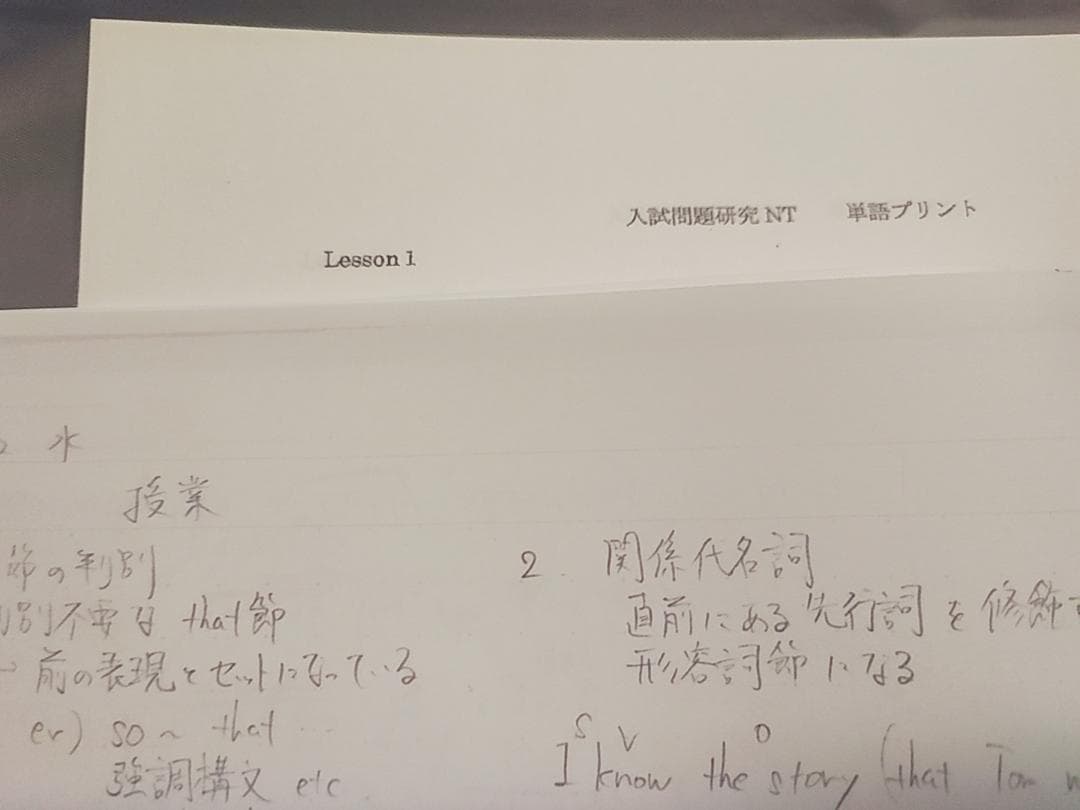 入試問題研究 NT 単語プリント
Lesson 1
水
授業
節の判別
別不要な that節
前の表現とセットになっている
ex) so ~ that ...
強調構文 etc
2. 関係代名詞
直前にある先行詞を修飾
形容詞節になる
S V O
I know the story (that Tom